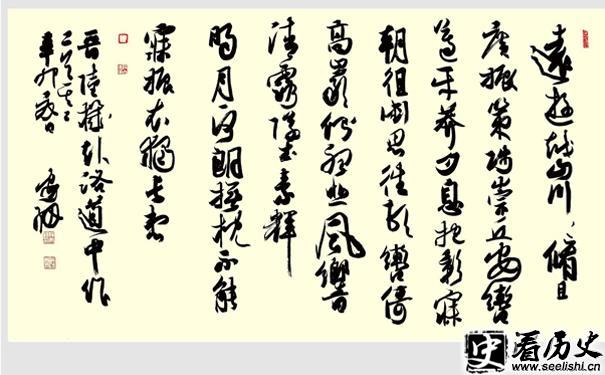 遠遊越山川〻脩且
廣振策陟崇丘安轡
遵平莽夕息抱影寐
朝徂銜思往頓轡倚
高巖側聽悲風響
清露墜素輝
明月一何朗撫枕不能
寐振衣獨長想
晉陸機赴洛道中作
二首之二
辛卯 日
史 看历史
www.seelishi.cn